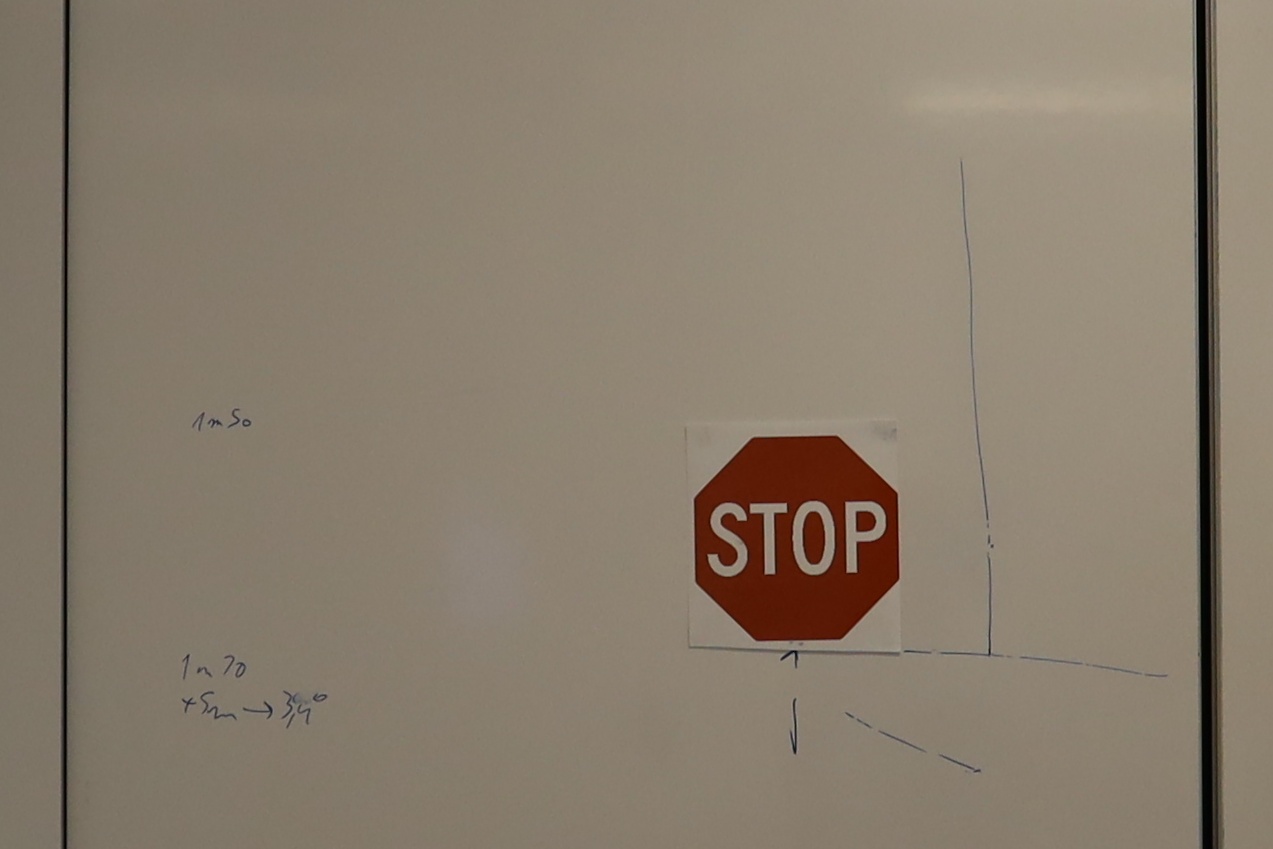 1m50
STOP
1m70
+5m → 3,4°